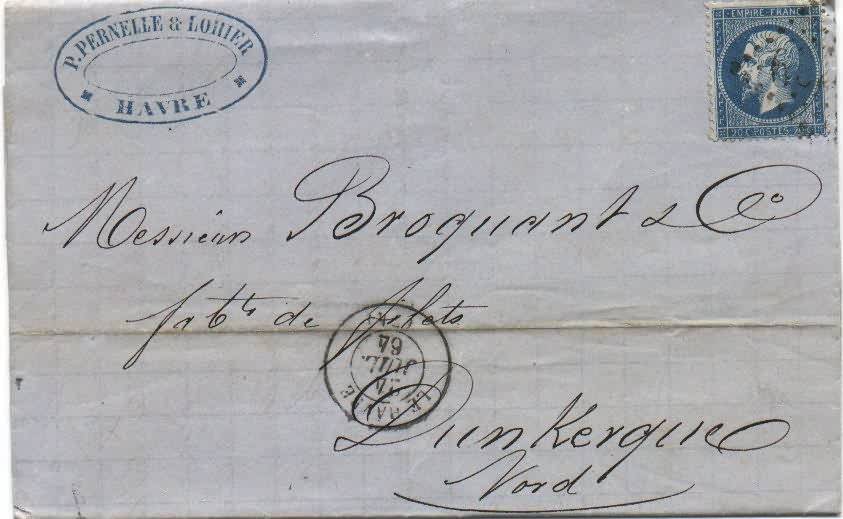 P. PERNELLE & LORIER
HAVRE
EMPIRE FRANC
20 C POSTES 20
Messieurs Broquant & Co
fabts de filets
LE HAVRE
JUIL.
64
Dunkerque
Nord